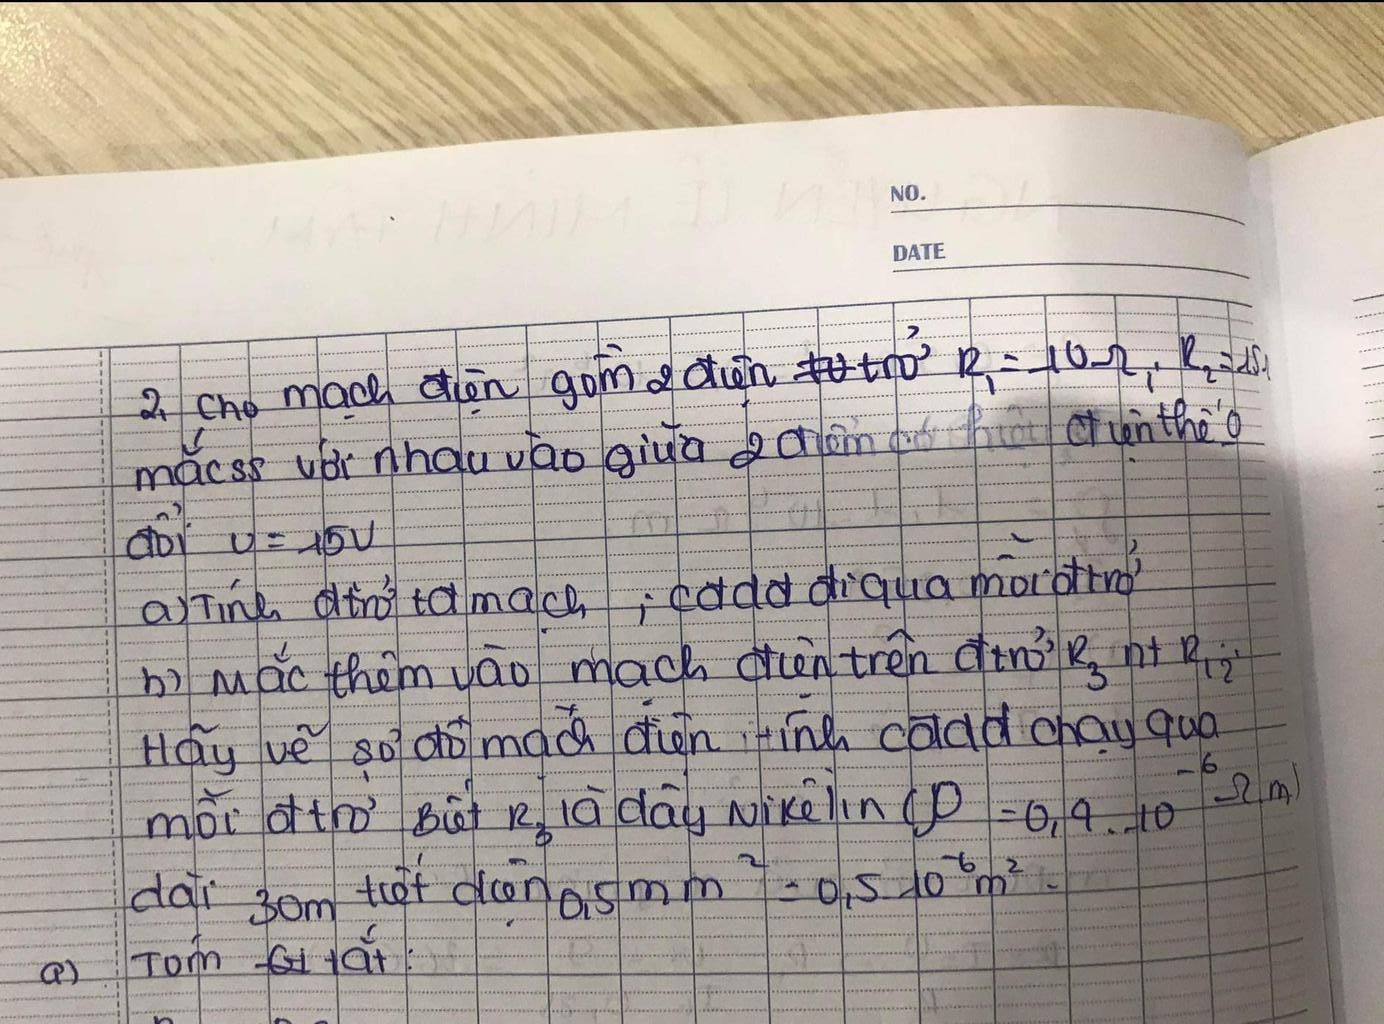 NO.
DATE
2, Cho mạch điện gồm 2 điện trở R₁ = 10Ω, R₂ = 15
mắc ss với nhau vào giữa 2 điểm có hiệu điện thế 0
đổi U = 15V
a) Tính đtrở tđ mạch ; cđdđ đi qua mỗi đtrở
b) Mắc thêm vào mạch điện trên đtrở R₃ nt R₁₂.
Hãy vẽ sơ đồ mạch điện, tính cđdđ chạy qua
mỗi đtrở Biết R₃ là dây Nikêlin (ρ = 0,4.10⁻⁶ Ωm)
dài 30m tiết diện 0,5mm² = 0,5.10⁻⁶m².
a) Tóm tắt: